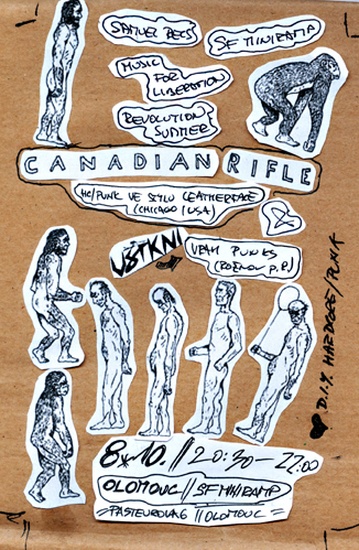 SAMUEL BECS
SF MINIRAMP
MUSIC
FOR
LIBERATION
REVOLUTION
SUMMER
CANADIAN RIFLE
HC/PUNK VE STYLU LEATHERFACE
(CHICAGO/USA)
&
VŠTKNI
URAH PUNKS
(ROŽNOV P.R.)
D.I.Y. HARDCORE/PUNK
8.10. // 20:30-22:00
OLOMOUC // SF MINIRAMP
=PASTEUROVA 6 // OLOMOUC=